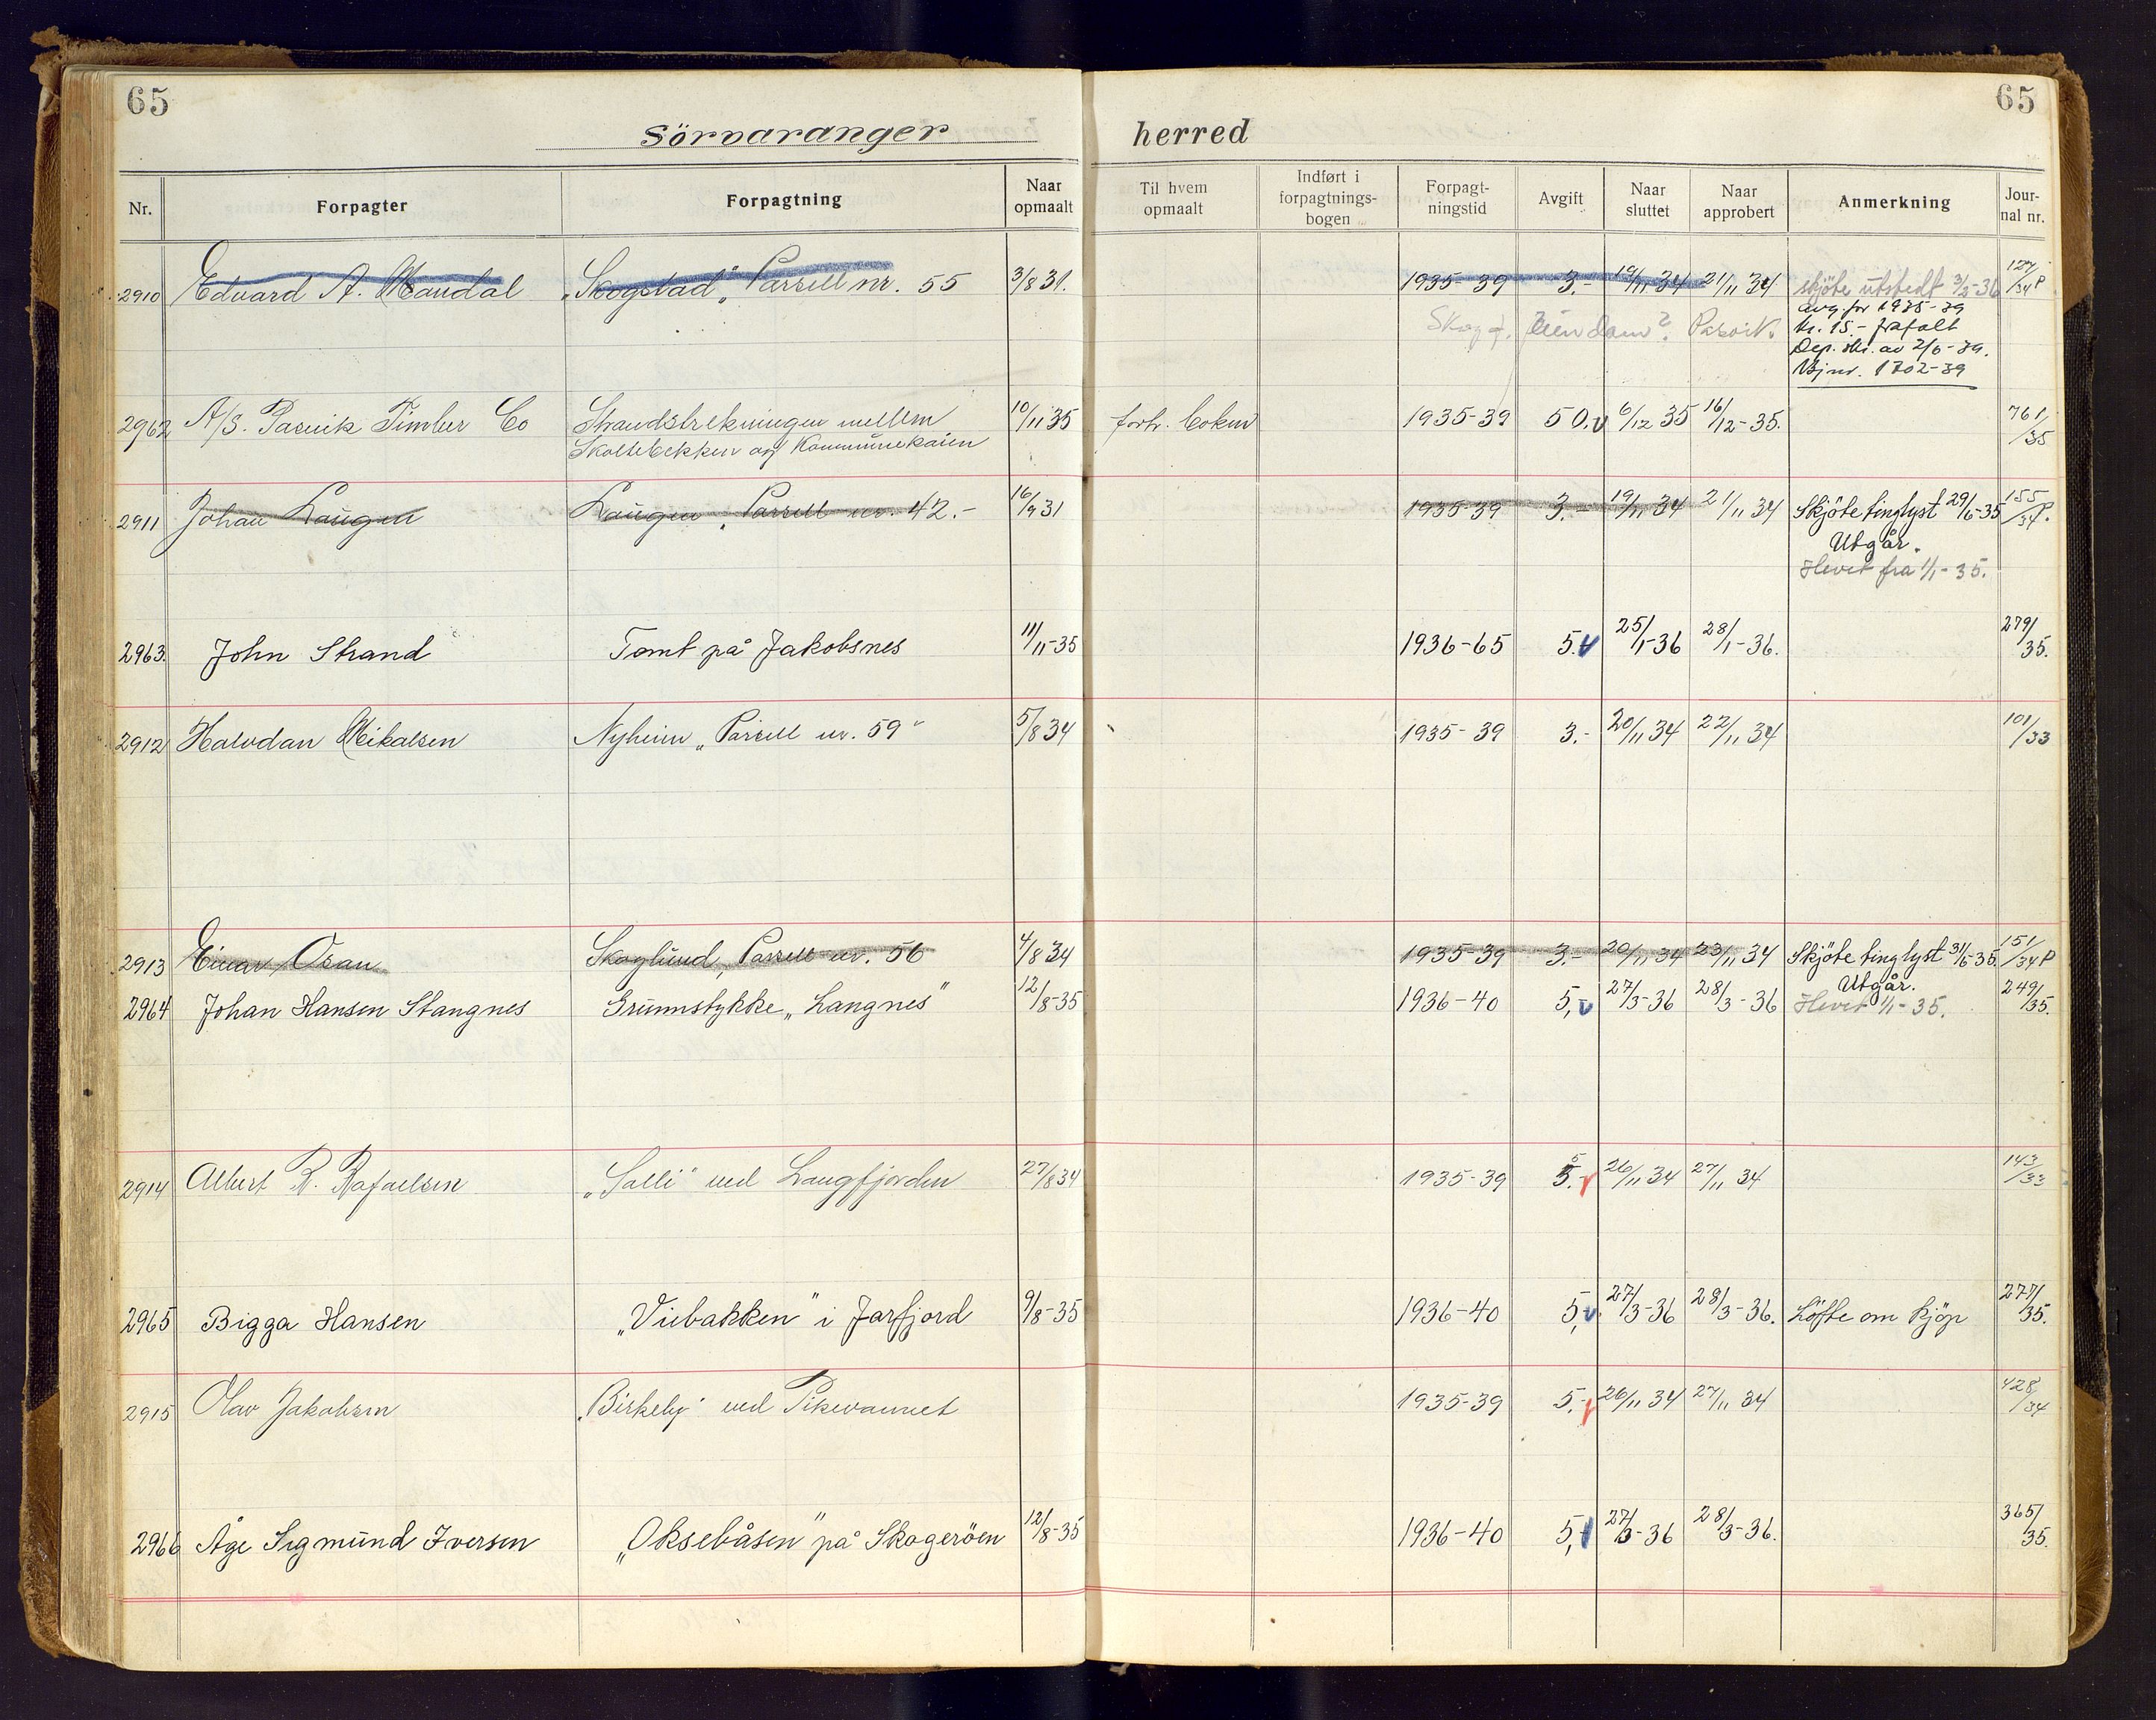 65 65
Sörvaranger herred
Nr. Forpagter Forpagtning Naar opmaalt Til hvem opmaalt Indført i forpagtnings-bogen Forpagt-ningstid Avgift Naar sluttet Naar approbert Anmerkning Jour-nal nr.
2910 Edvard A. Mandal „Skogstad“, Parsell nr. 55 3/8 31. 1935-39 3.- 19/11 34 21/11 34 skjöte utstedt 3/2-36 127/34 P
Skog f. Eiendom? Pasvik.
avg. for 1935-39
kr. 15.- frafalt
Dep. skr. av 2/6-39.
Bjnr. 1702-39
2962 A/S. Pasvik Timber Co Strandstrekningen mellem 10/11 35 forh. 1935-39 50.- 6/12 35 16/12-35. 761/35
Skoltebekken og Kommunekaien
2911 Johan Haugen Haugen „Parsell nr. 42.- 16/9 31 1935-39 3.- 19/11 34 21/11 34 Skjöte tinglyst 29/6-35 155/34 P.
Utgår.
Hevet fra 1/1-35.
2963. John Strand Tomt på Jakobsnes 11/11-35 1936-65 5.- 25/1-36 28/1-36. 279/35.
2912 Halvdan Mikalsen Nyheim „Parsell nr. 59“ 5/8 34 1935-39 3.- 20/11 34 22/11 34 101/33
2913 Einar Oran Skoglund, Parsell nr. 56 4/8 34 1935-39 3.- 20/11 34 23/11 34 Skjöte tinglyst 31/5-35. 151/34 P
Utgår.
2964 Johan Hansen Stangnes Grunnstykke „Langnes“ 12/8-35 1936-40 5,- 27/3-36 28/3-36 Hevet 1/1-35. 249/35.
2914 Albert R. Rafaelsen „Salli“ ved Langfjorden 27/8 34 1935-39 5.- 26/11 34 27/11 34 143/33
2965 Bigga Hansen „Viebakken“ i Jarfjord 9/8-35 1936-40 5,- 27/3-36 28/3-36. Löfte om kjöp 277/35.
2915 Olav Jakobsen „Birkely“ ved Pikevannet 1935-39 5.- 26/11 34 27/11 34 428/34
2966 Åge Sigmund Iversen „Oksebåsen“ på Skogeröen 12/8-35 1936-40 5,- 27/3-36 28/3-36. 365/35.